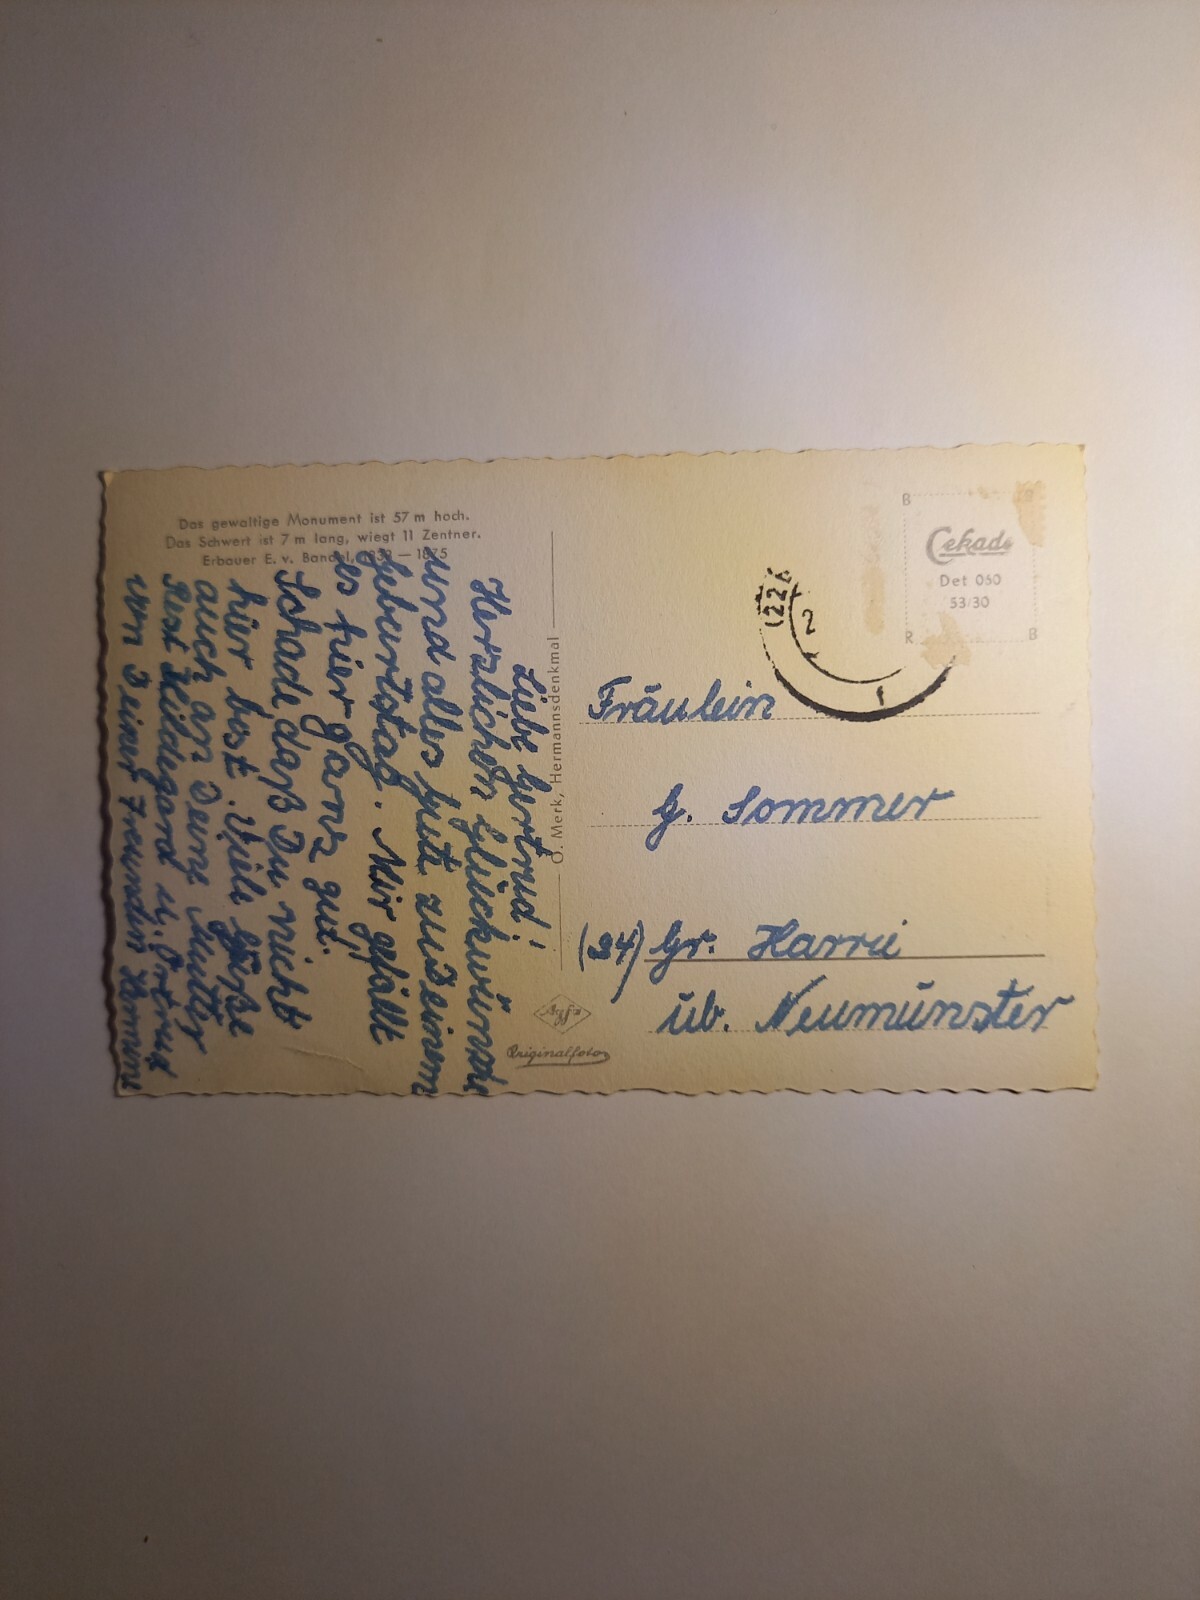 Das gewaltige Monument ist 57 m hoch.
Das Schwert ist 7 m lang, wiegt 11 Zentner.
Erbauer E. v. Bandel, 1838 — 1875
Liebe Gertrud!
Herzlichen Glückwünsche
und alles Gute zu Deinem
Geburtstag. Mir gefällt
es hier ganz gut.
Schade, daß Du nicht
hier bist. Viele Grüße
auch an Deine Mutter
Hildegard u. Ortrud
von Deiner Freundin
O. Merk, Hermannsdenkmal
Agfa
Originalfoto
B
Cekade
Det 050
53/30
R B
(22
2
1
Fräulein
G. Sommer
(24) Gr. Harrie
üb. Neumünster